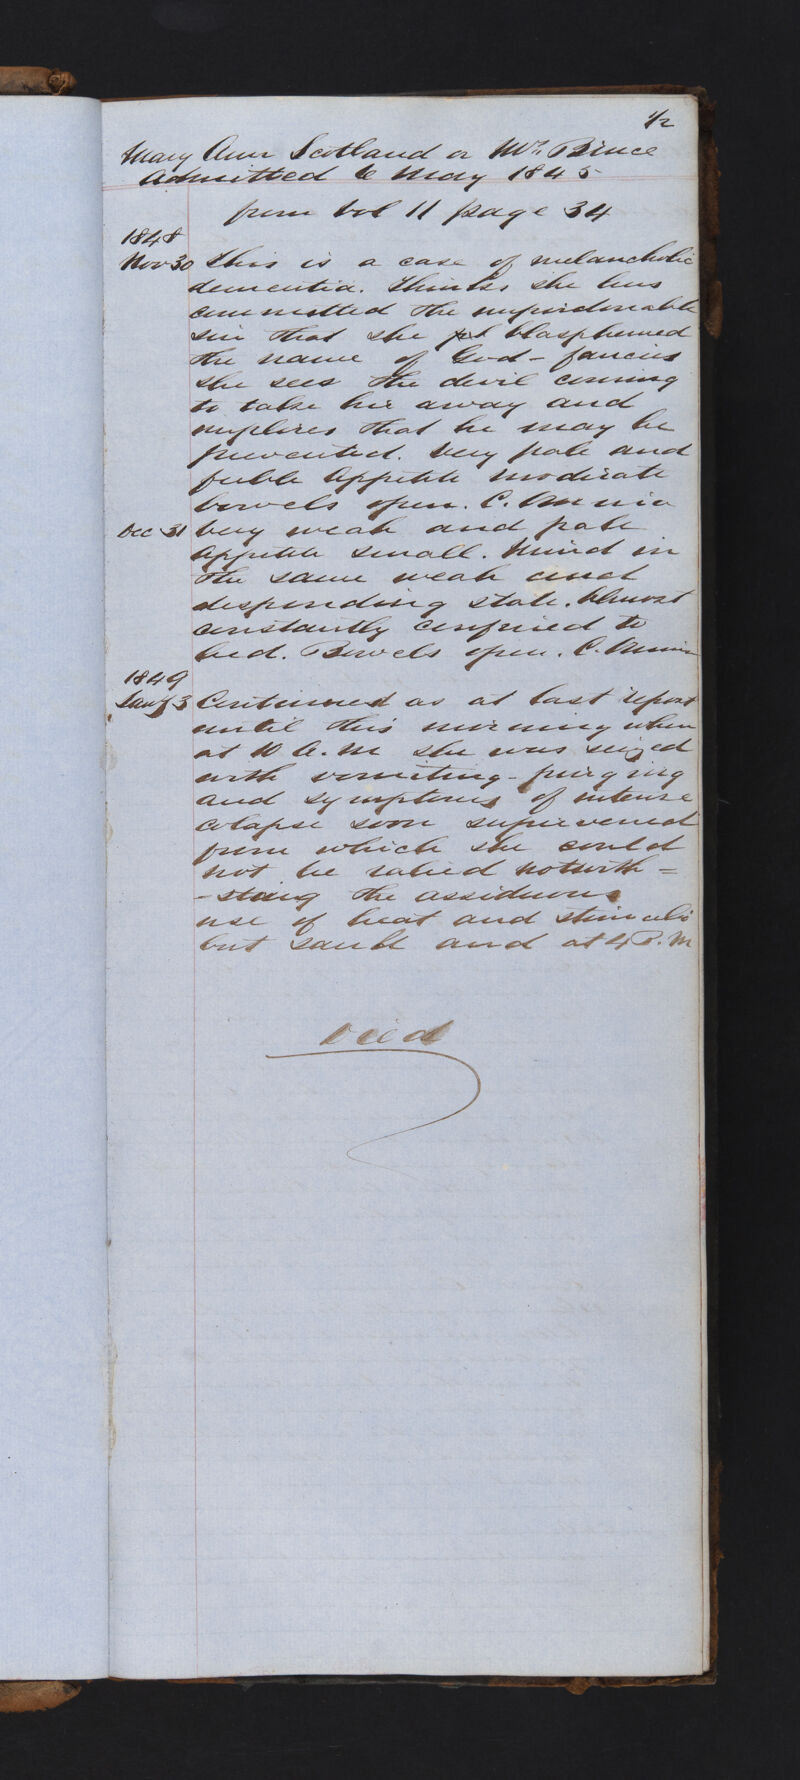 42
Mary Ann Scotland or Mrs Bruce
Admitted 6 May 1845
from Vol 11 page 34
1848
Nov 30 This is a case of melancholic
dementia. Thinks she has
committed the unpardonable
sin that she blasphemed
the name of God - fancies
she sees the devil coming
to take her away and
implores that he may be
prevented. Very pale and
feeble Appetite moderate
bowels open. C. Omnia
Dec 31 Very weak and pale
Appetite small. Mind in
the same weak and
desponding state. Almost
constantly confined to
bed. Bowels open. C. Omnia
1849
Jany 3 Continued as at last report
until this morning when
at 10 A.M she was seized
with vomiting - purging
and symptoms of intense
colapse soon supervened
from which she could
not be ralied notwith=
-staing the assiduous
use of heat and stimuli
but sank and at 4 P.M
Died